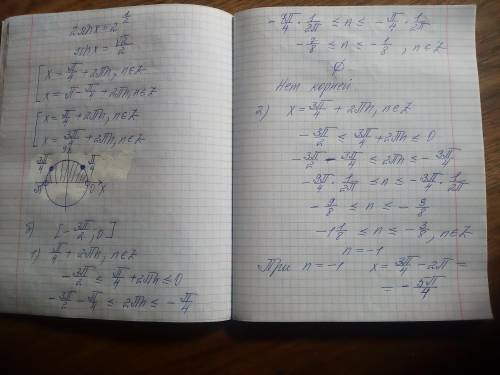 2 sin x = 2^{1/2}
sin x = √2/2
[ x = π/4 + 2πn, n∈Z
x = π - π/4 + 2πn, n∈Z
[ x = π/4 + 2πn, n∈Z
x = 3π/4 + 2πn, n∈Z
3π/4 π/4
π 0 x
б) [-3π/2; 0]
1) π/4 + 2πn, n∈Z
-3π/2 ≤ π/4 + 2πn ≤ 0
-3π/2 - π/4 ≤ 2πn ≤ -π/4
-7π/4 · 1/2π ≤ n ≤ -π/4 · 1/2π
-7/8 ≤ n ≤ -1/8, n∈Z
∅
Нет корней
2) x = 3π/4 + 2πn, n∈Z
-3π/2 ≤ 3π/4 + 2πn ≤ 0
-3π/2 - 3π/4 ≤ 2πn ≤ -3π/4
-9π/4 · 1/2π ≤ n ≤ -3π/4 · 1/2π
-9/8 ≤ n ≤ -3/8
-1 1/8 ≤ n ≤ -3/8, n∈Z
n = -1
При n = -1 x = 3π/4 - 2π =
= -5π/4